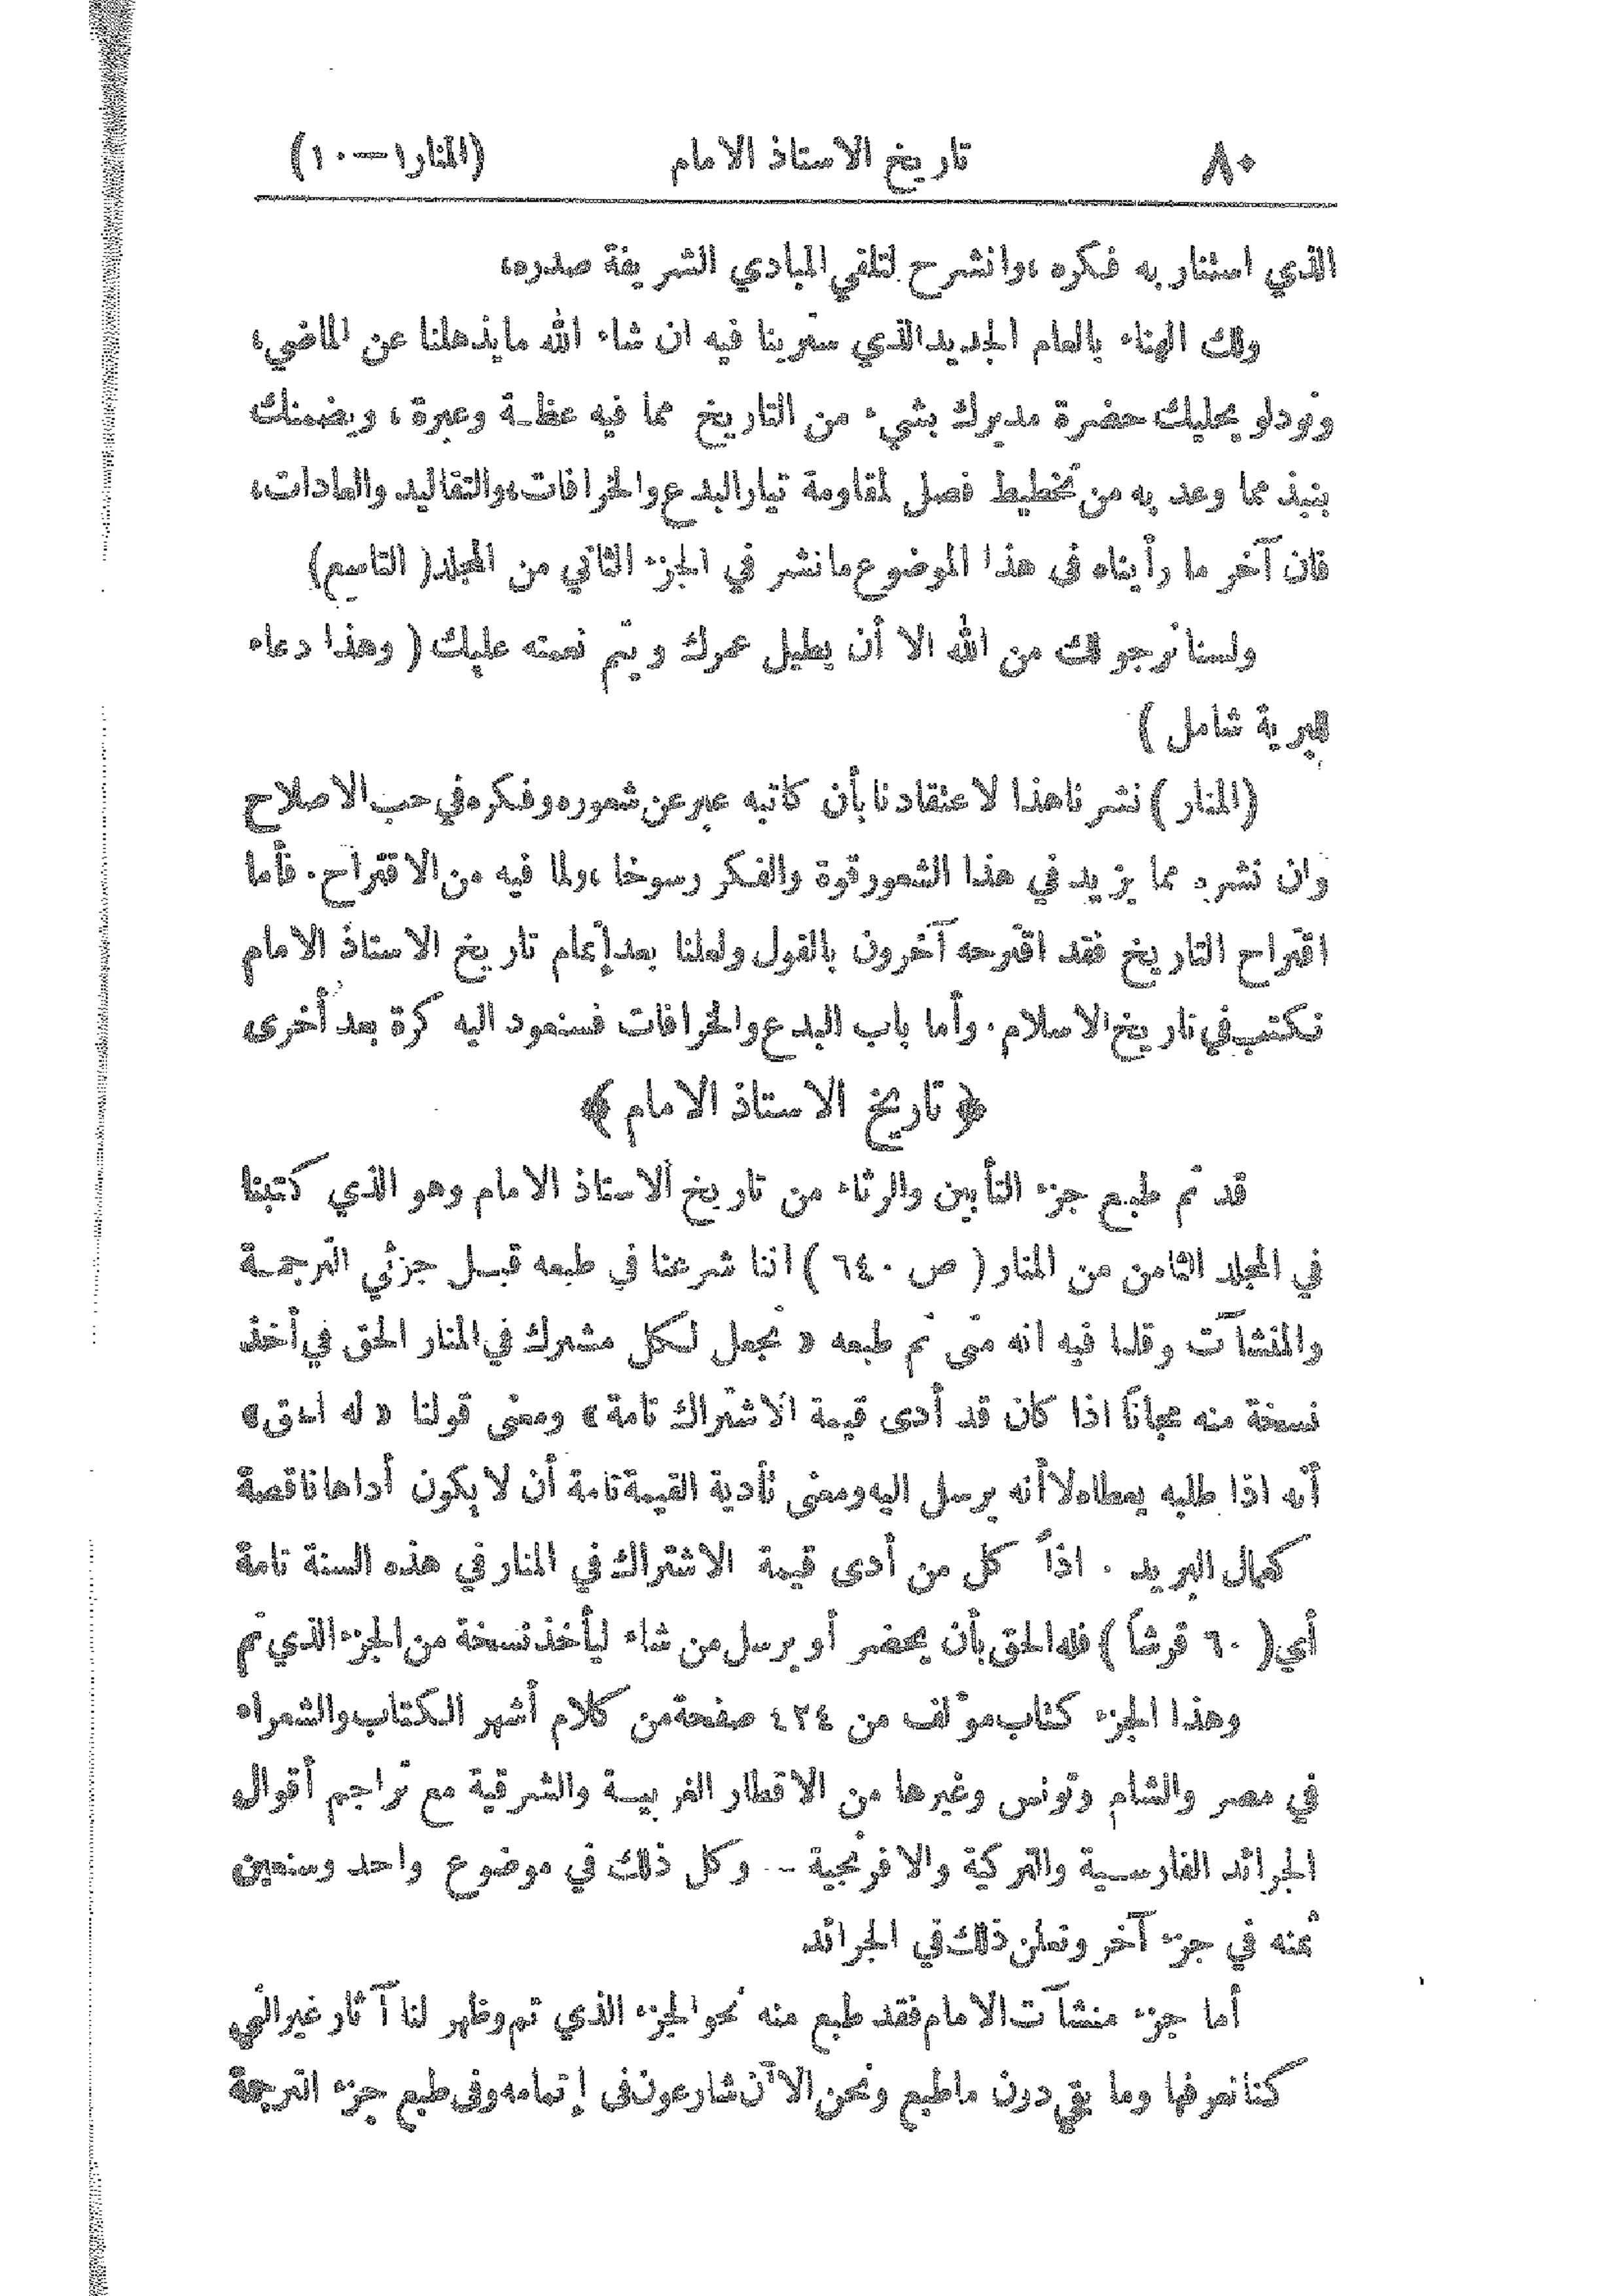 ٨٠ تاريخ الاستاذ الامام (المنار١—١٠)
الذي استنار به فكره ،وانشرح لتلقي المبادي الشريفة صدره،
ولك الهناء بالعام الجديد الذي سترينا فيه ان شاء الله ما يذهلنا عن الماضي،
ونود لو يحليك حضرة مديرك بشيء من التاريخ مما فيه عظة وعبرة ، ويضمنك
بنبذ مما وعد به من تخطيط فصل لمقاومة تيار البدع والخرافات،والتقاليد والعادات،
فان آخر ما رأيناه في هذا الموضوع ما نشر في الجزء الثاني من المجلد( التاسع)
ولسنا نرجو لك من الله الا أن يطيل عمرك ويتم نعمته عليك ( وهذا دعاء
للبرية شامل )
(المنار ) نشرنا هذا لاعتقادنا بأن كاتبه عبر عن شعوره وفكره في حب الاصلاح
وان نشره مما يزيد في هذا الشعور قوة والفكر رسوخا ،ولما فيه من الاقتراح. فأما
اقتراح التاريخ فقد اقترحه آخرون بالقول ولعلنا بعد إتمام تاريخ الاستاذ الامام
نكتب في تاريخ الاسلام. وأما باب البدع والخرافات فسنعود اليه كرة بعد أخرى
﴿ تاريخ الاستاذ الامام ﴾
قد تم طبع جزء التأبين والرثاء من تاريخ الاستاذ الامام وهو الذي كتبنا
في المجلد الثامن من المنار ( ص ٦٤٠ ) اننا شرعنا في طبعه قبل جزئي الترجمة
والمنشآت وقلنا فيه انه متى تم طبعه « نجعل لكل مشترك في المنار الحق في أخذ
نسخة منه مجاناً اذا كان قد أدى قيمة الاشتراك تامة » ومعنى قولنا « له الحق»
أنه اذا طلبه يعطاه لا أنه يرسل اليه ومعنى تأدية القيمة تامة أن لا يكون أداها ناقصة
كعمال البريد . اذاً كل من أدى قيمة الاشتراك في المنار في هذه السنة تامة
أي( ٦٠ قرشاً ) فله الحق بأن يحضر أو يرسل من شاء ليأخذ نسخة من الجزء الذي تم
وهذا الجزء كتاب مؤلف من ٤٢٤ صفحة من كلام أشهر الكتاب والشعراء
في مصر والشام وتونس وغيرها من الاقطار الغربية والشرقية مع تراجم أقوال
الجرائد الفارسية والتركية والافرنجية -- وكل ذلك في موضوع واحد وسنعين
ثمنه في جزء آخر ونعلن ذلك في الجرائد
أما جزء منشآت الامام فقد طبع منه نحو الجزء الذي تم وظهر لنا آثار غير التي
كنا نعرفها وما بقي دون ما طبع ونحن الآن شارعون في إتمامه وفي طبع جزء الترجمة